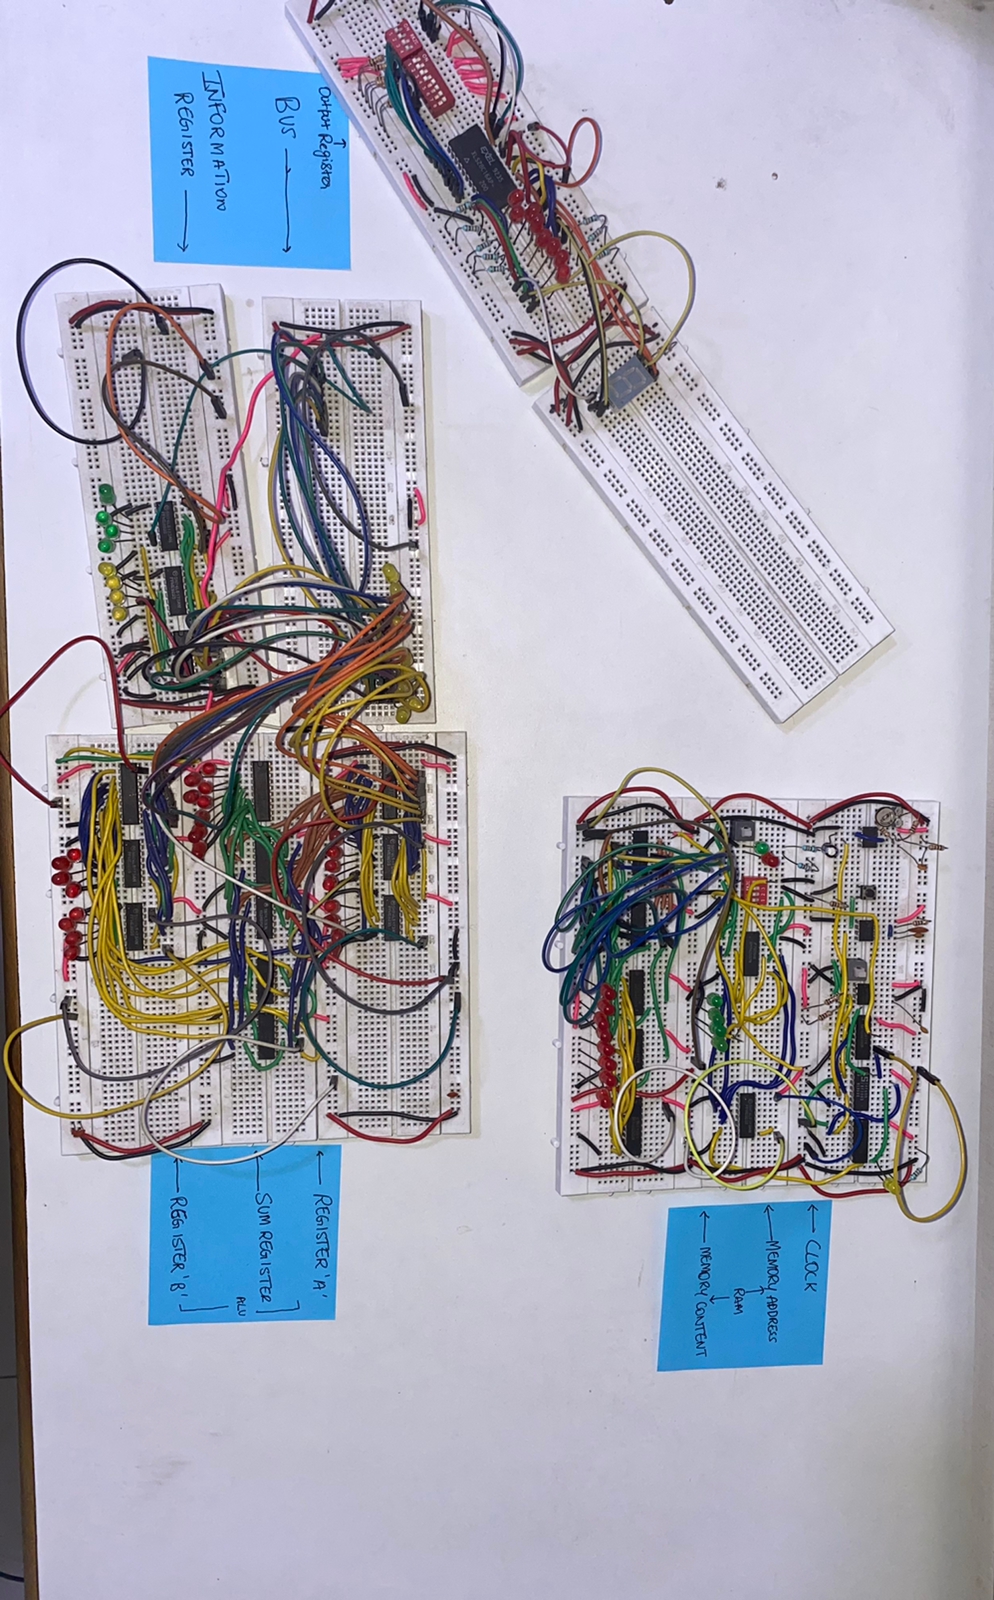 CLOCK
MEMORY ADDRESS
RAM
MEMORY CONTENT
EXEL 9235
Output Register
BUS
INFORMATION
REGISTER
REGISTER 'A'
SUM REGISTER
ALU
REGISTER 'B'